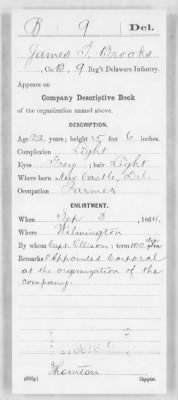 B 9 Del.
James T. Brooks
, Co. B, 9 Reg't Delaware Infantry.
Appears on
Company Descriptive Book
of the organization named above.
DESCRIPTION.
Age 22 years; height 5 feet 6 inches.
Complexion Light
Eyes Grey; hair Light
Where born New Castle, Del.
Occupation Farmer
ENLISTMENT.
When Sep 3, 1864.
Where Wilmington
By whom Capt. Ellison; term 100 days
Remarks: Appointed Corporal
at the organization of the
company.
Thornton
Copyist.